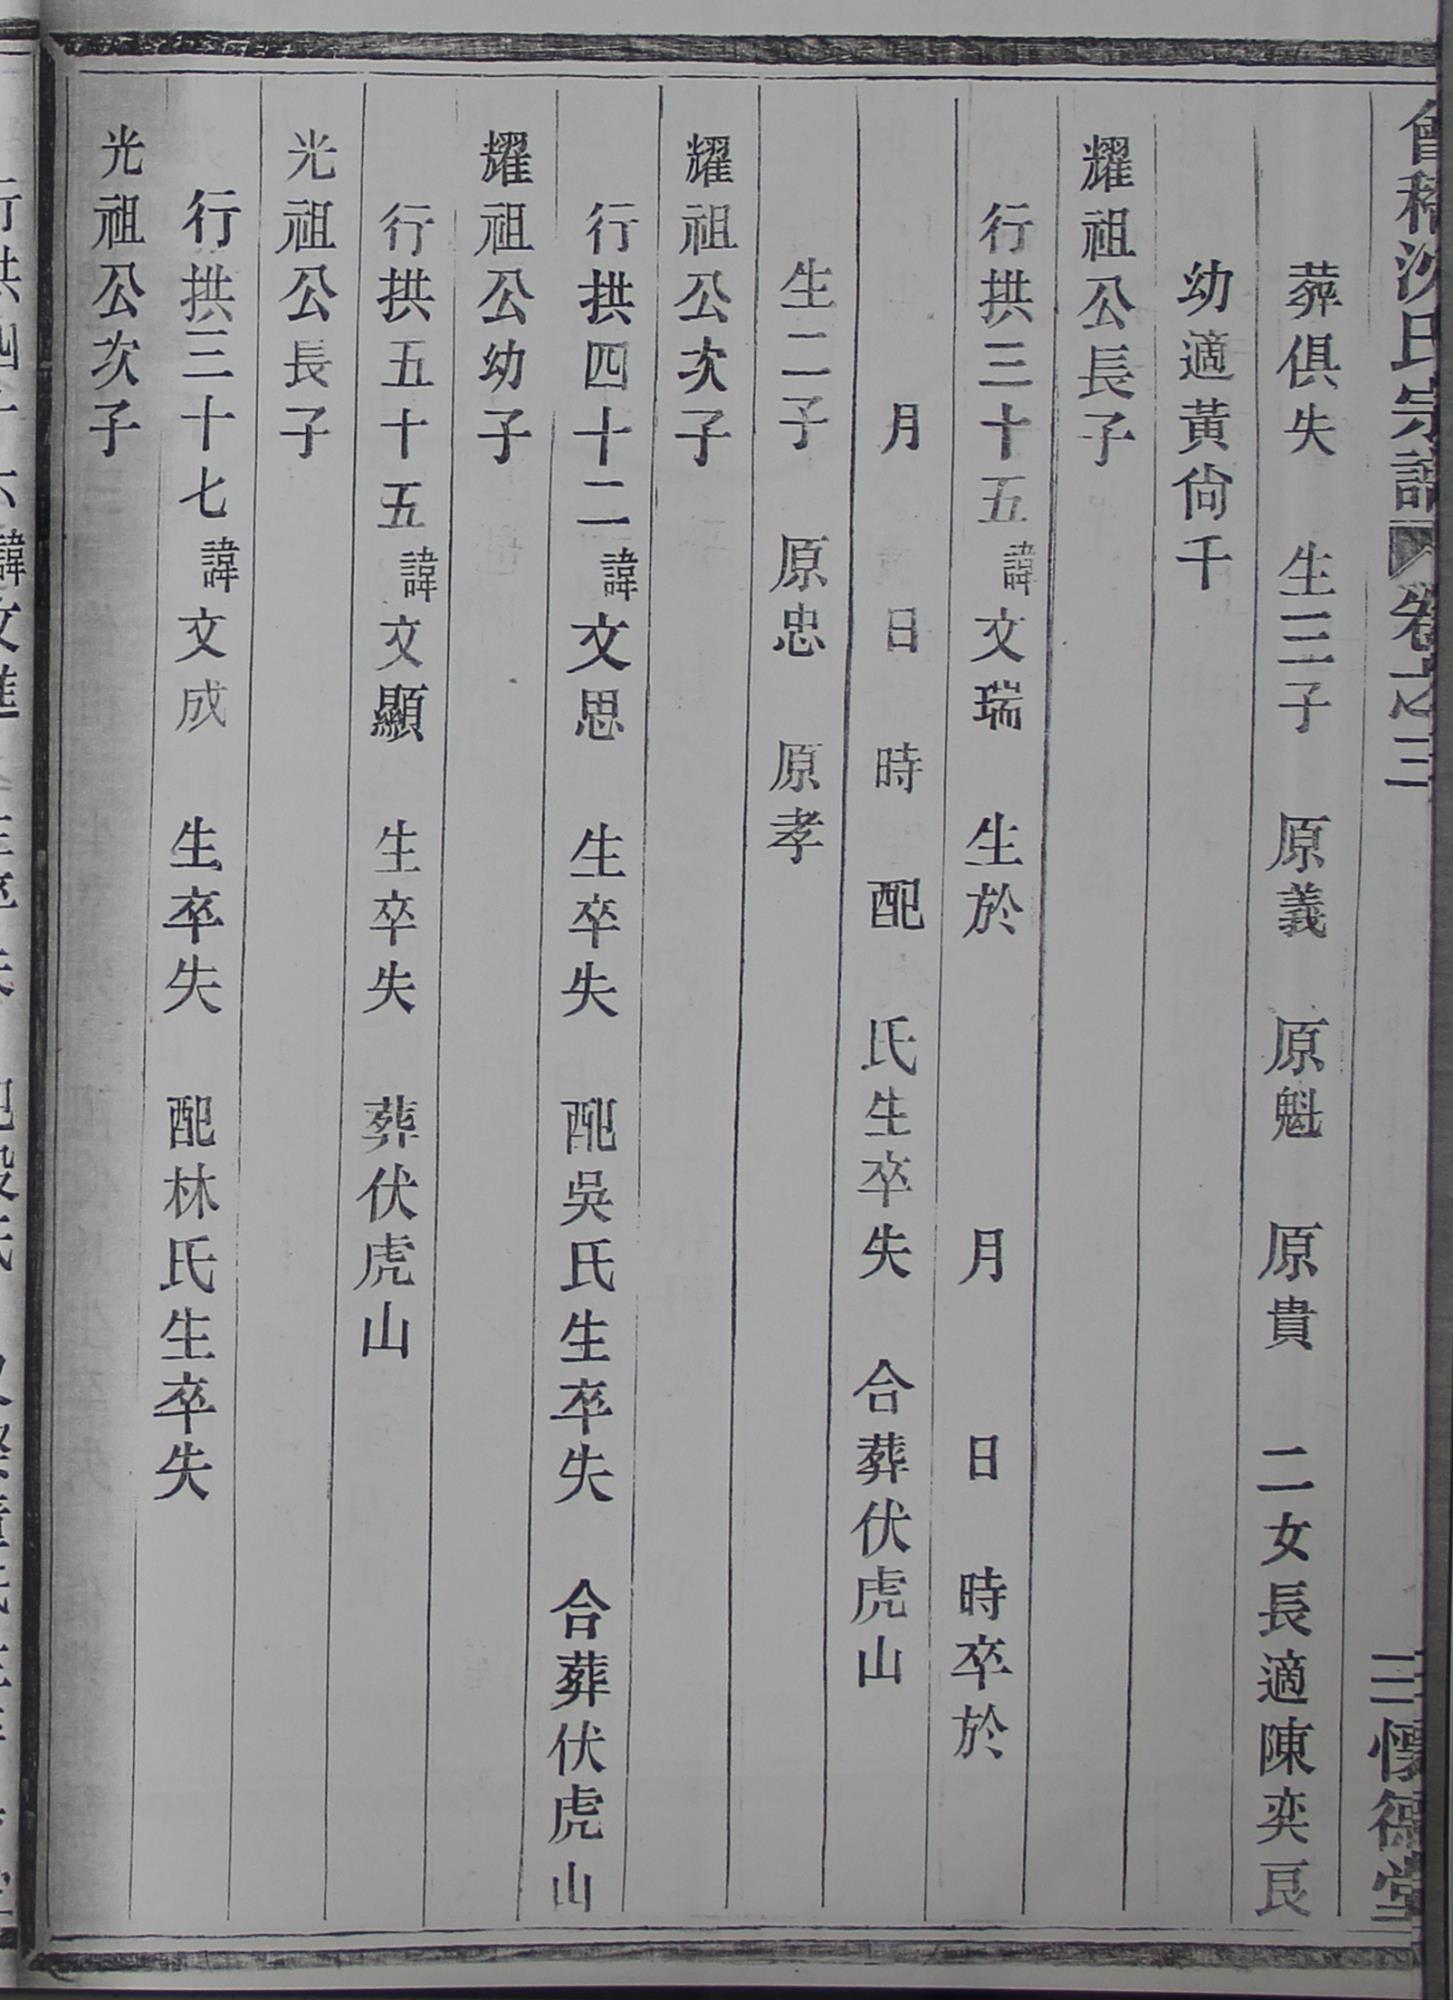 會稽沈氏宗譜 卷之三 三 懷德堂
葬俱失 生三子 原義 原魁 原貴 二女長適陳奕良
幼適黃尙千
耀祖公長子
行拱三十五諱文瑞 生於 月 日 時卒於
月 日 時 配 氏生卒失 合葬伏虎山
生二子 原忠 原孝
耀祖公次子
行拱四十二諱文思 生卒失 配吳氏生卒失 合葬伏虎山
耀祖公幼子
行拱五十五諱文顯 生卒失 葬伏虎山
光祖公長子
行拱三十七諱文成 生卒失 配林氏生卒失
光祖公次子